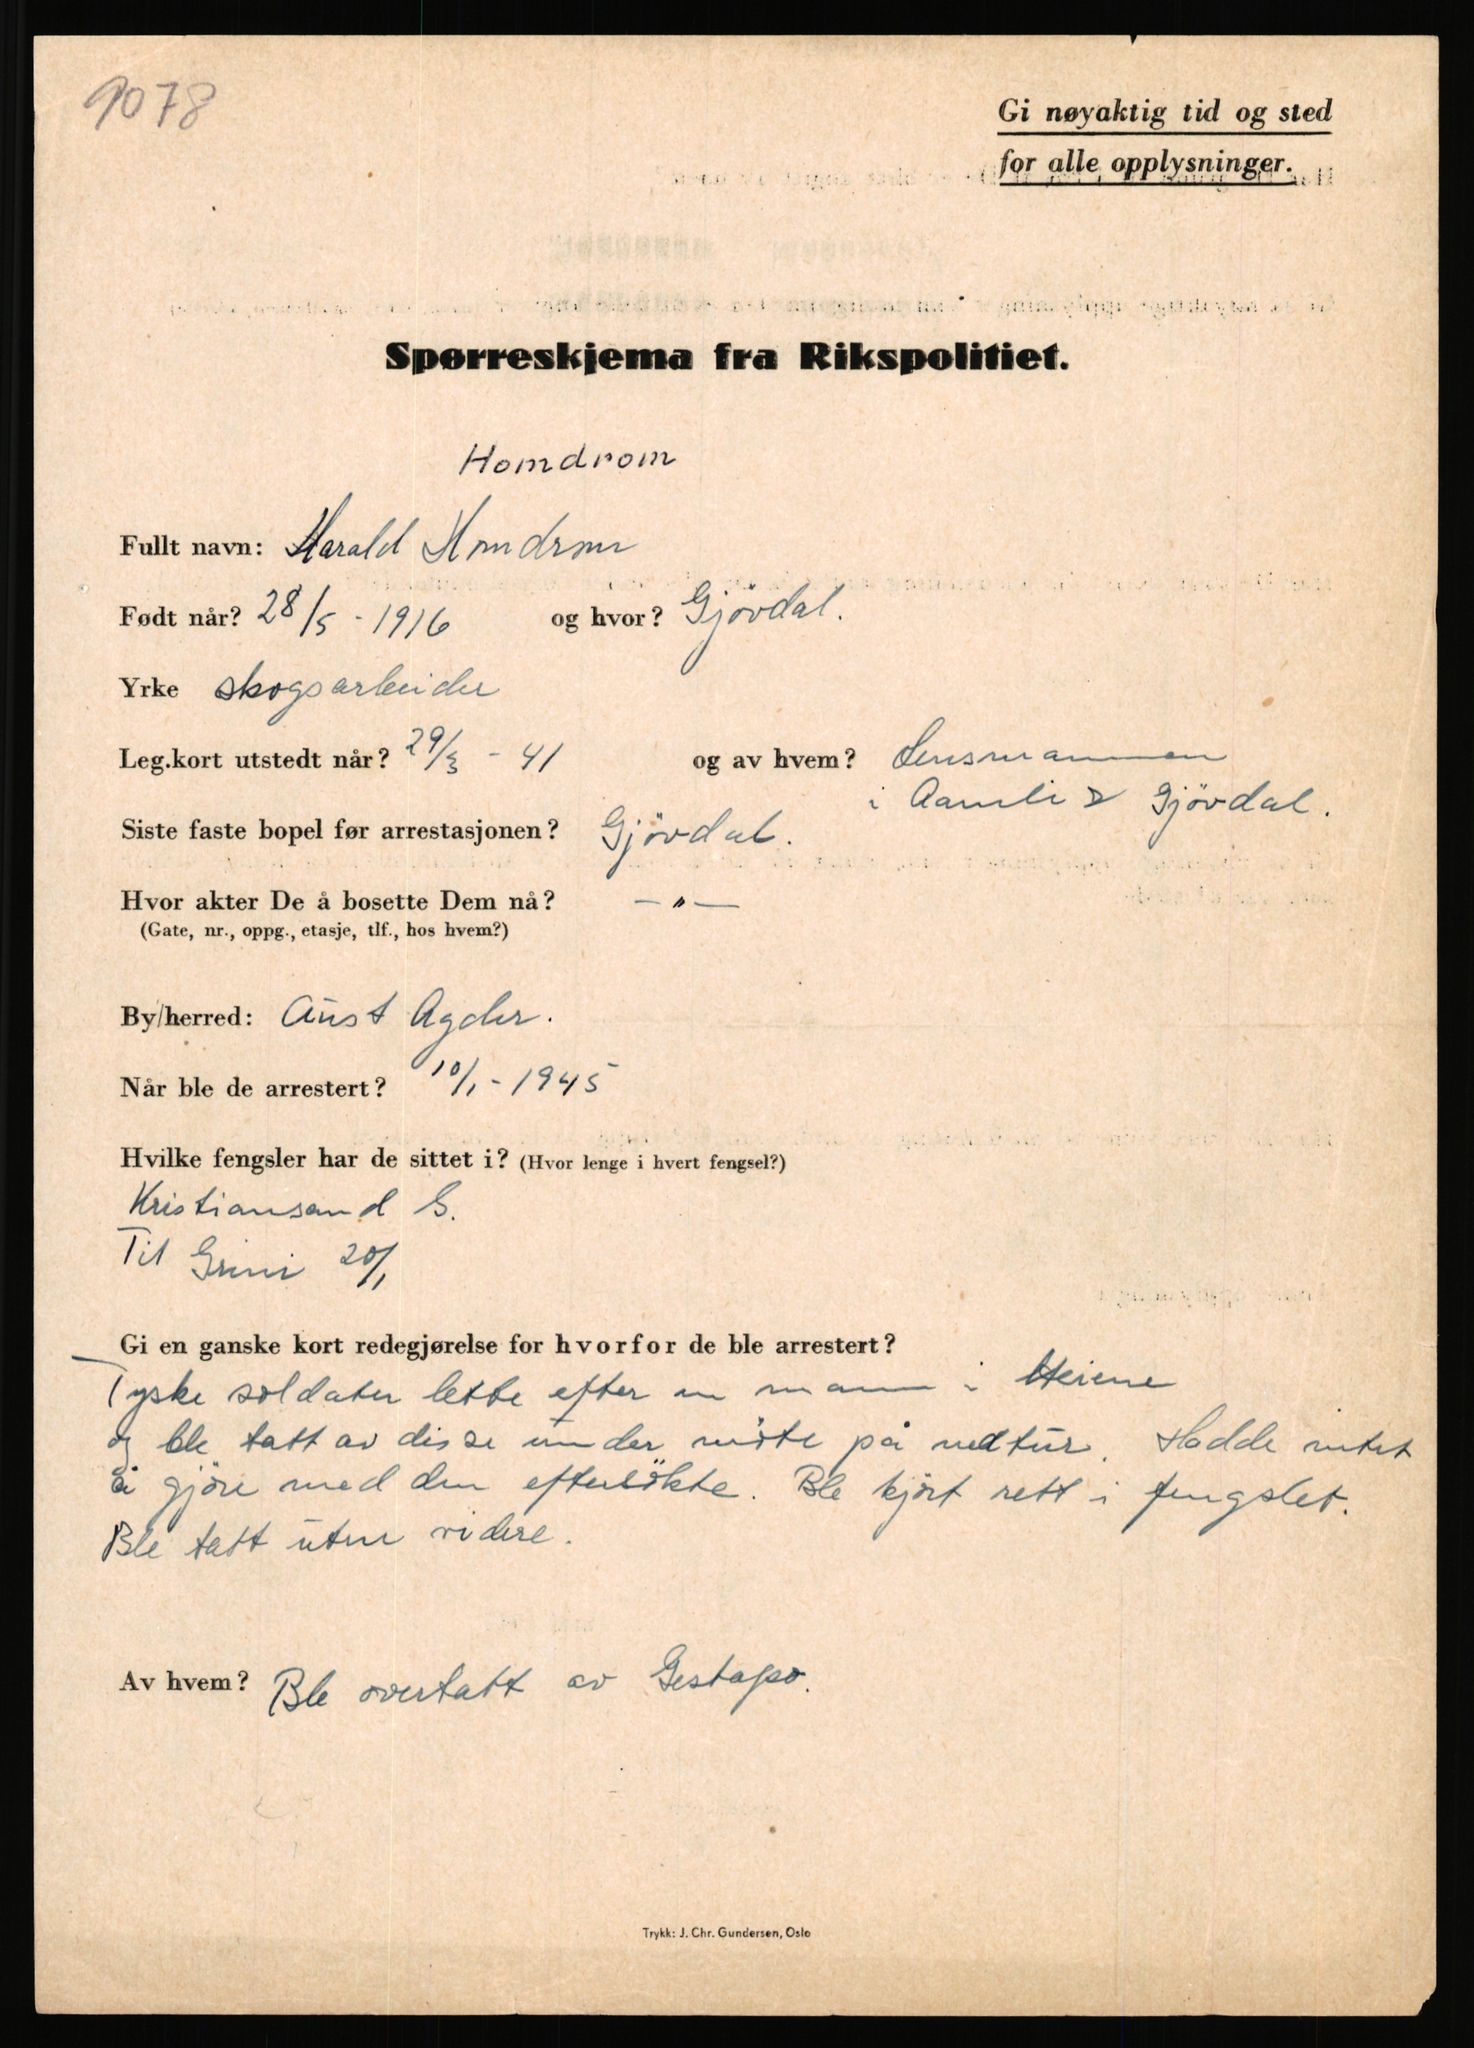 1078
Gi nøyaktig tid og sted
for alle opplysninger.
Spørreskjema fra Rikspolitiet.
Homdrom
Fullt navn: Harald Homdrom
Født når? 28/5 - 1916 og hvor? Gjövdal.
Yrke skogsarbeider
Leg.kort utstedt når? 29/3 - 41 og av hvem? Lensmannen
i Aamli & Gjövdal.
Siste faste bopel før arrestasjonen? Gjövdal.
Hvor akter De å bosette Dem nå? — " —
(Gate, nr., oppg., etasje, tlf., hos hvem?)
By/herred: Aust Agder.
Når ble de arrestert? 10/1 - 1945
Hvilke fengsler har de sittet i? (Hvor lenge i hvert fengsel?)
Kristiansand S.
Til Grini 20/1
Gi en ganske kort redegjørelse for hvorfor de ble arrestert?
Tyske soldater lette efter en mann i Heiene
og ble tatt av disse under möte på nedtur. Hadde intet
å gjöre med den eftersökte. Ble kjört rett i fengslet.
Ble tatt uten videre.
Av hvem? Ble overtatt av Gestapo.
Trykk: J. Chr. Gundersen, Oslo